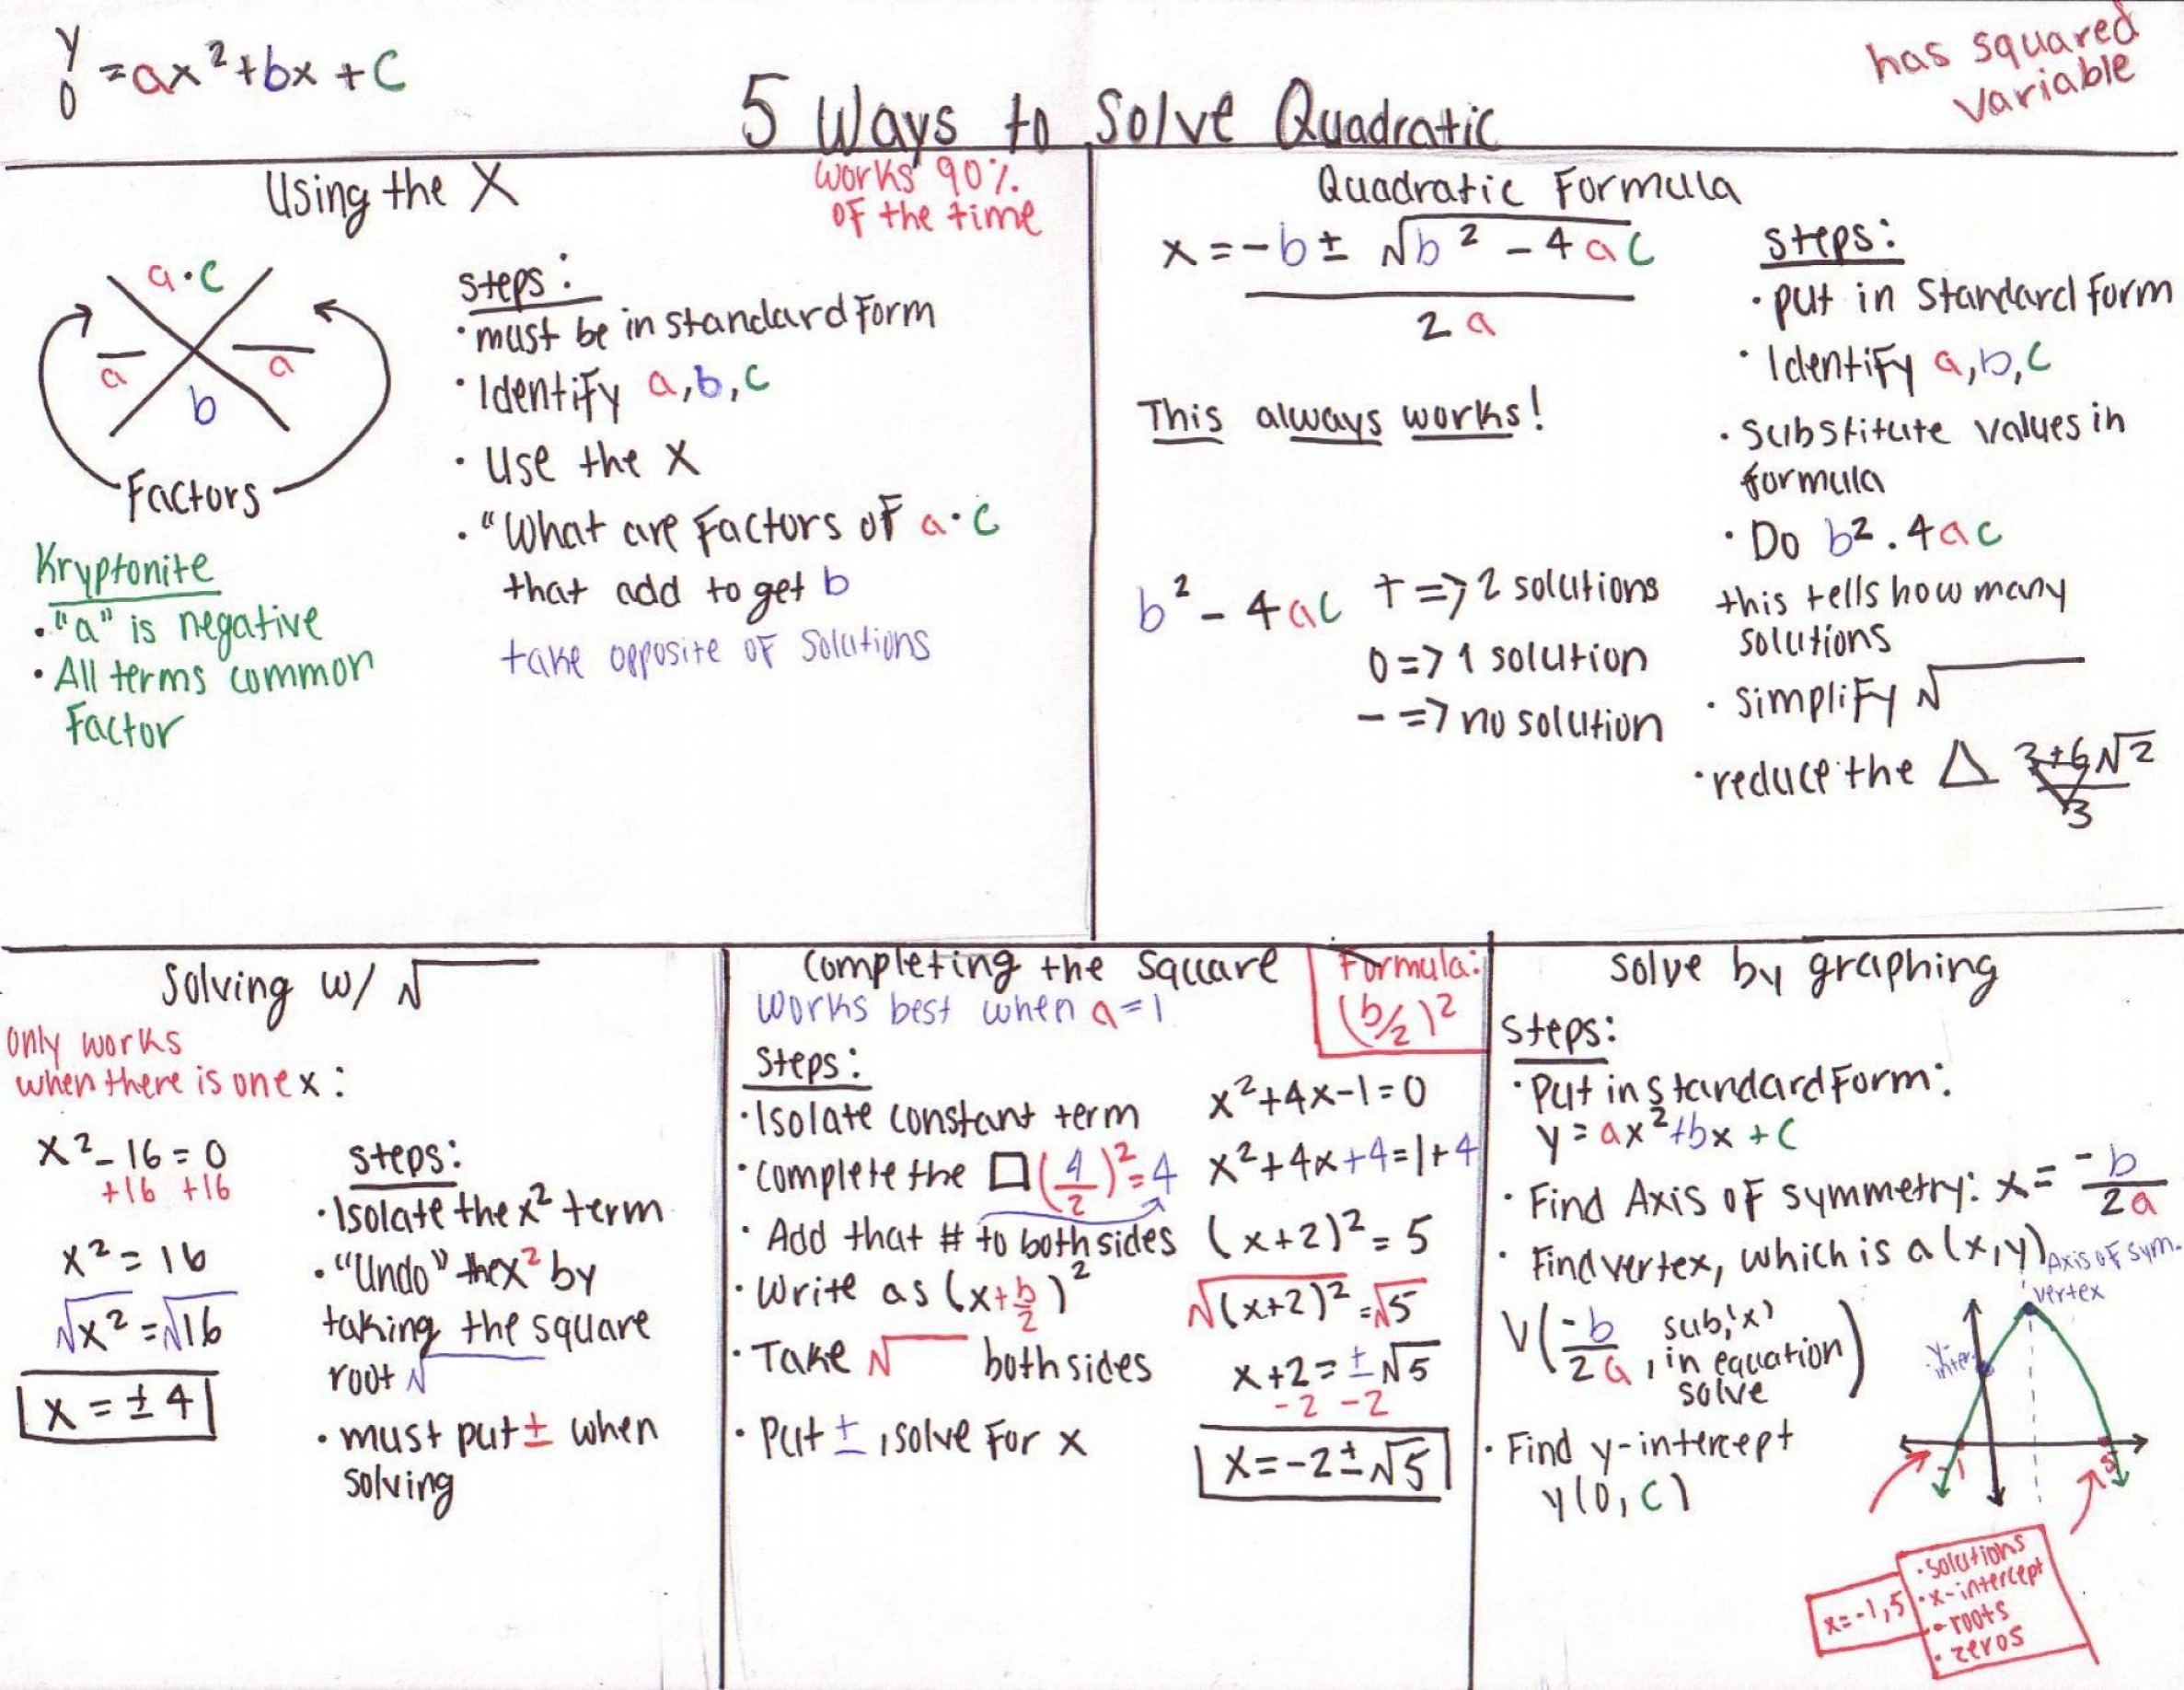 y
0 = ax² + bx + c
has squared
variable
5 Ways to Solve Quadratic
Using the X
works 90%
of the time
a·c
a
a
b
Factors
Kryptonite
• "a" is negative
• All terms common
factor
steps:
• must be in standard form
• Identify a, b, c
• Use the X
• "What are factors of a·c
that add to get b
take opposite of solutions
Quadratic Formula
x = -b ± √b² - 4ac
2a
This always works!
b² - 4ac + => 2 solutions
0 => 1 solution
- => no solution
steps:
• put in standard form
• Identify a, b, c
• substitute values in
formula
• Do b² . 4ac
this tells how many
solutions
• simplify √
• reduce the △ 3±6√2
3
Solving w/ √
only works
when there is one x:
x² - 16 = 0
+16 +16
x² = 16
√x² = √16
x = ± 4
steps:
• Isolate the x² term
• "Undo" the x² by
taking the square
root √
• must put ± when
solving
Completing the Square
Works best when a = 1
Formula:
(b/2)²
Steps:
• Isolate constant term
• complete the □ (4/2)² = 4
• Add that # to both sides
• Write as (x + b/2)²
• Take √ both sides
• Put ±, solve for x
x² + 4x - 1 = 0
x² + 4x + 4 = 1 + 4
(x+2)² = 5
√(x+2)² = √5
x + 2 = ± √5
-2 -2
x = -2 ± √5
Solve by graphing
Steps:
• Put in standard form:
y = ax² + bx + c
• Find Axis of symmetry: x = -b/2a
• Find vertex, which is a (x, y)
V(-b/2a, sub, 'x'
in equation
solve)
• Find y-intercept
y(0, c)
Axis of sym.
vertex
y-
inter.
-1
5
x = -1, 5
• solutions
• x-intercept
• roots
• zeros